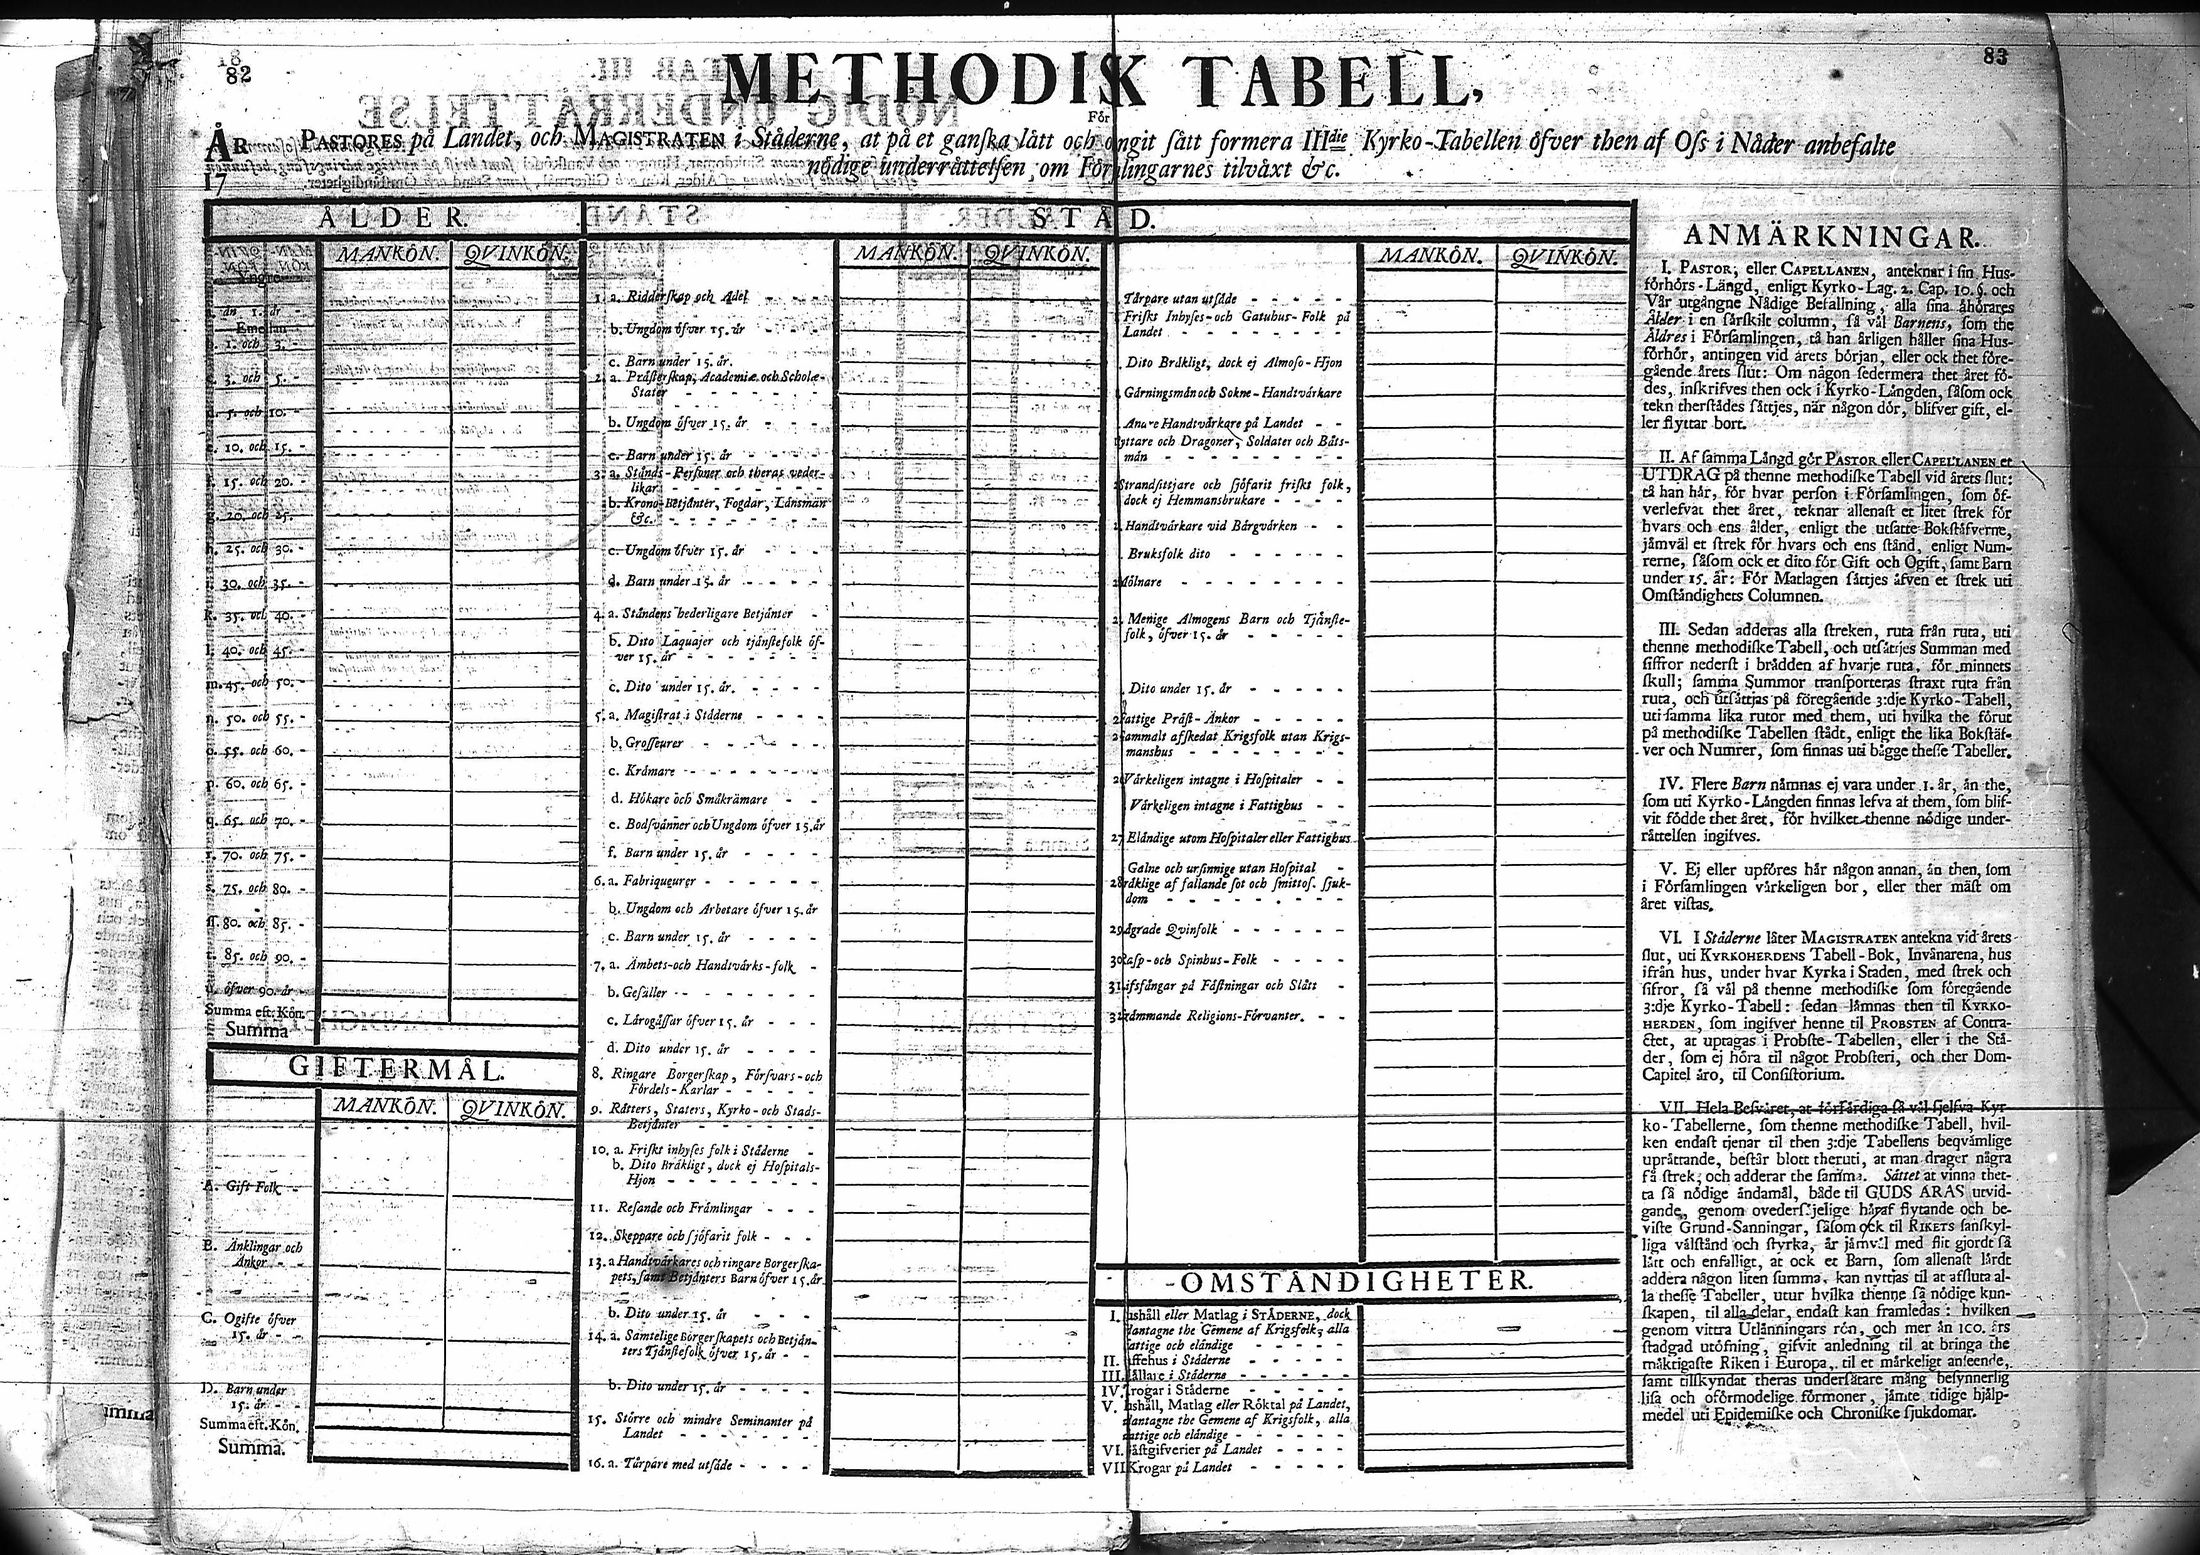 82
83
METHODIK TABELL,
För
ÅR PASTORES på Landet, och MAGISTRATEN i Ståderne, at på et ganska lått och ömgit sått formera IIIdie Kyrko-Tabellen öfver then af Oss i Nåder anbefalte
17 nödige underråttelsen om Församlingarnes tilvåxt &c.
ÅLDER.
MANKÖN. QVINKÖN.
Yngre
a. ån 1. år
Emellan
b. 1. och 3. -
c. 3. och 5. -
d. 5. och 10. -
e. 10. och 15. -
f. 15. och 20. -
g. 20. och 25. -
h. 25. och 30. -
i. 30. och 35. -
k. 35. och 40. -
l. 40. och 45. -
m. 45. och 50. -
n. 50. och 55. -
o. 55. och 60. -
p. 60. och 65. -
q. 65. och 70. -
r. 70. och 75. -
s. 75. och 80. -
ſſ. 80. och 85. -
t. 85. och 90. -
u. öfver 90. år -
Summa eft. Kön.
Summa
GIFTERMÅL.
MANKÖN. QVINKÖN.
A. Gift Folk -
B. Änklingar och
Änkor - -
C. Ogifte öfver
15. år - -
D. Barn under
15. år - -
Summa eft. Kön.
Summa.
STÅD.
MANKÖN. QVINKÖN.
1. a. Ridderſkap och Adel
b. Ungdom öfver 15. år
c. Barn under 15. år.
2. a. Pråſterſkap, Academiæ och Scholæ-
Stater
b. Ungdom öfver 15. år
c. Barn under 15. år
3. a. Stånds-Perſoner och theras veder-
likar
b. Krono-Betjånter, Fogdar, Lånsmån
&c.
c. Ungdom öfver 15. år
d. Barn under 15. år
4. a. Ståndens hederligare Betjånter
b. Dito Laquajer och tjånſtefolk öf-
ver 15. år
c. Dito under 15. år.
5. a. Magiſtrat i Ståderne
b. Groſſeurer
c. Kråmare
d. Hökare och Småkrämare
e. Bodſvånner och Ungdom öfver 15. år
f. Barn under 15. år
6. a. Fabriqueurer
b. Ungdom och Arbetare öfver 15. år
c. Barn under 15. år
7. a. Ämbets-och Handtvårks-folk
b. Geſåller
c. Lårogåſſar öfver 15. år
d. Dito under 15. år
8. Ringare Borgerſkap, Förſvars-och
Fördels-Karlar
9. Råtters, Staters, Kyrko-och Stads-
Betjånter
10. a. Friſkt inhyſes folk i Ståderne
b. Dito Bråkligt, dock ej Hoſpitals-
Hjon
11. Reſande och Fråmlingar
12. Skeppare och ſjöfarit folk
13. a Handtvårkares och ringare Borgerſka-
pets, ſamt Betjånters Barn öfver 15. år
b. Dito under 15. år
14. a. Samtelige Borgerſkapets och Betjån-
ters Tjånſtefolk öfver 15. år
b. Dito under 15. år
15. Större och mindre Seminanter på
Landet
16. a. Tårpare med utſåde
MANKÖN. QVINKÖN.
Tårpare utan utſåde
Friſkt Inhyſes-och Gatuhus-Folk på
Landet
Dito Bråkligt, dock ej Almoſo-Hjon
Gårningsmån och Sokne-Handtvårkare
Andre Handtvårkare på Landet
yttare och Dragoner, Soldater och Båts-
mån
Strandſittjare och ſjöfarit friſkt folk,
dock ej Hemmansbrukare
Handtvårkare vid Bårgvårken
Bruksfolk dito
Mölnare
Menige Almogens Barn och Tjånſte-
folk, öfver 15. år
Dito under 15. år
attige Pråſt-Änkor
ammalt afſkedat Krigsfolk utan Krigs-
manshus
Vårkeligen intagne i Hoſpitaler
Vårkeligen intagne i Fattighus
27 Elåndige utom Hoſpitaler eller Fattighus
Galne och urſinnige utan Hoſpital
28 råklige af fallande ſot och ſmittoſ. ſjuk-
dom
29 dgrade Qvinfolk
30 aſp-och Spinhus-Folk
31 ifsfångar på Fåſtningar och Slått
32 råmmande Religions-Förvanter.
OMSTÅNDIGHETER.
I. ushåll eller Matlag i STÅDERNE, dock
dantagne the Gemene af Krigsfolk, alla
attige och elåndige
II. affehus i Ståderne
III. ållare i Ståderne
IV. rogar i Ståderne
V. ushåll, Matlag eller Röktal på Landet,
dantagne the Gemene af Krigsfolk, alla
attige och elåndige
VI. åſtgifverier på Landet
VII. Krogar på Landet
ANMÄRKNINGAR.
I. PASTOR, eller CAPELLANEN, anteknar i ſin Hus-
förhörs-Långd, enligt Kyrko-Lag. 2. Cap. 10. §. och
Vår utgångne Nådige Befallning, alla ſina åhörares
Ålder i en ſårſkilt column, ſå vål Barnens, ſom the
Äldres i Förſamlingen, tå han årligen håller ſina Hus-
förhör, antingen vid årets början, eller ock thet före-
gående årets ſlut: Om någon ſedermera thet året fö-
des, inſkrifves then ock i Kyrko-Långden, ſåſom ock
tekn therſtådes ſåttjes, når någon dör, blifver gift, el-
ler flyttar bort.
II. Af ſamma Långd gör PASTOR eller CAPELLANEN et
UTDRAG på thenne methodiſke Tabell vid årets ſlut:
tå han hår, för hvar perſon i Förſamlingen, ſom öf-
verlefvat thet året, teknar allenaſt et litet ſtrek för
hvars och ens ålder, enligt the utſatte Bokſtåfverne,
jåmvål et ſtrek för hvars och ens ſtånd, enligt Num-
rerne, ſåſom ock et dito för Gift och Ogift, ſamt Barn
under 15. år: För Matlagen ſåttjes åfven et ſtrek uti
Omſtåndighets Columnen.
III. Sedan adderas alla ſtreken, ruta från ruta, uti
thenne methodiſke Tabell, och utſåttjes Summan med
ſiffror nederſt i brådden af hvarje ruta, för minnets
ſkull; ſamma Summor transporteras ſtraxt ruta från
ruta, och utſåttjas på föregående 3:dje Kyrko-Tabell,
uti ſamma lika rutor med them, uti hvilka the förut
på methodiſke Tabellen ſtådt, enligt the lika Bokſtåf-
ver och Numrer, ſom finnas uti bågge theſſe Tabeller.
IV. Flere Barn nåmnas ej vara under 1. år, ån the,
ſom uti Kyrko-Långden finnas lefva af them, ſom blif-
vit födde thet året, för hvilket thenne nödige under-
råttelſen ingifves.
V. Ej eller upföres hår någon annan, ån then, ſom
i Förſamlingen vårkeligen bor, eller ther måſt om
året viſtas.
VI. I Ståderne låter MAGISTRATEN antekna vid årets
ſlut, uti KYRKOHERDENS Tabell-Bok, Invånarena, hus
ifrån hus, under hvar Kyrka i Staden, med ſtrek och
ſifror, ſå vål på thenne methodiſke ſom föregående
3:dje Kyrko-Tabell: ſedan låmnas then til KYRKO-
HERDEN, ſom ingifver henne til PROBSTEN af Contra-
ctet, at uptagas i Probſte-Tabellen, eller i the Stå-
der, ſom ej höra til något Probſteri, och ther Dom-
Capitel åro, til Conſiſtorium.
VII. Hela Beſvåret, at förfårdiga ſå vål ſjelfva Kyr-
ko-Tabellerne, ſom thenne methodiſke Tabell, hvil-
ken endaſt tjenar til then 3:dje Tabellens beqvåmlige
upråttande, beſtår blott theruti, at man drager några
få ſtrek, och adderar the ſamma. Såttet at vinna thet-
ta ſå nödige åndamål, både til GUDS ÄRAS utvid-
gande, genom ovederſåjelige håraf flytande och be-
viſte Grund-Sanningar, ſåſom ock til RIKETS ſanſkyl-
liga vålſtånd och ſtyrka, år jåmvål med flit gjordt ſå
lått och enfalligt, at ock et Barn, ſom allenaſt lårdt
addera någon liten ſumma, kan nyttjas til at afſluta al-
la theſſe Tabeller, utur hvilka thenne ſå nödige kun-
ſkapen, til alla delar, endaſt kan framledas: hvilken
genom vittra Utlånningars rön, och mer ån 100. års
ſtadgad utöfning, gifvit anledning til at bringa the
måktigaſte Riken i Europa, til et mårkeligt anſeende,
ſamt tillſkyndat theras underſåtare mång beſynnerlig
liſa och oförmodelige förmoner, jåmte tidige hjålp-
medel uti Epidemiſke och Chroniſke ſjukdomar.